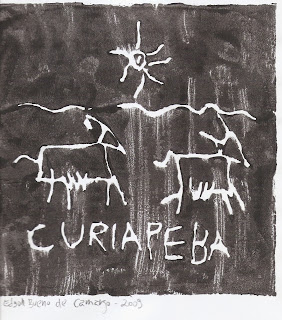 CURIAPEBA
Edson Bueno de Camargo - 2009